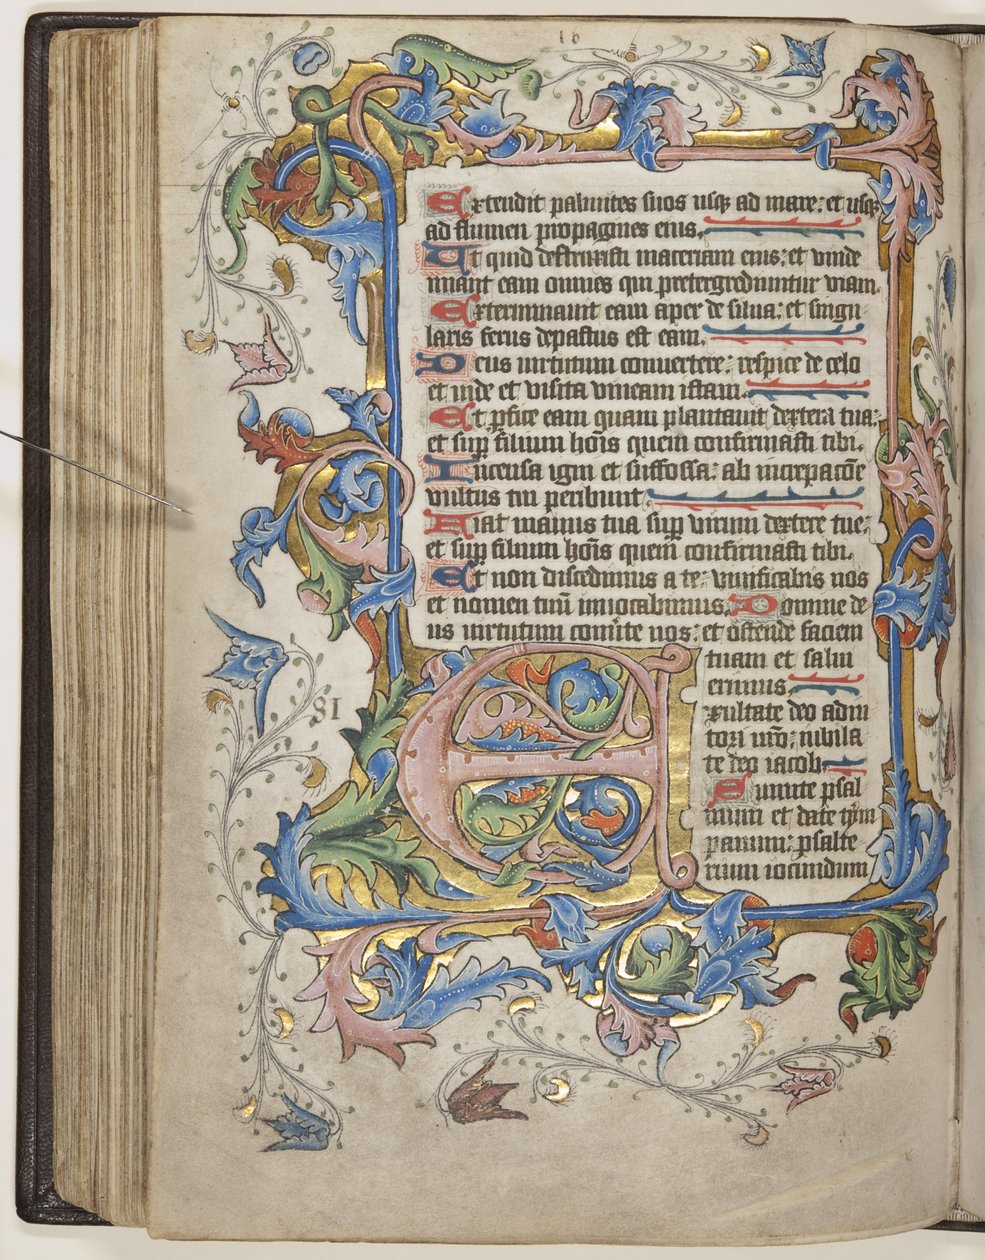 16
Extendit palmites suos usq; ad mare: et usq;
ad flumen propagines eius.
Ut quid destruxisti maceriam eius: et vinde
miant eam omnes qui pretergrediuntur viam.
Exterminavit eam aper de silva: et singu
laris ferus depastus est eam.
Deus virtutum convertere: respice de celo
et vide et visita vineam istam.
Et pfice eam quam plantavit dextera tua:
et sup filium hois quem confirmasti tibi.
Incensa igni et suffossa: ab increpacoe
vultus tui peribunt.
Fiat manus tua sup virum dextere tue:
et sup filium hois quem confirmasti tibi.
Et non discedimus a te: vivificabis nos
et nomen tuu invocabimus. Domine de
us virtutum coverte nos: et ostende faciem
tuam et salvi
erimus.
81
Exultate deo adiu
tori nro: iubila
te deo iacob.
Sumite psal
mum et date tym
panum: psalte
rium iocundum